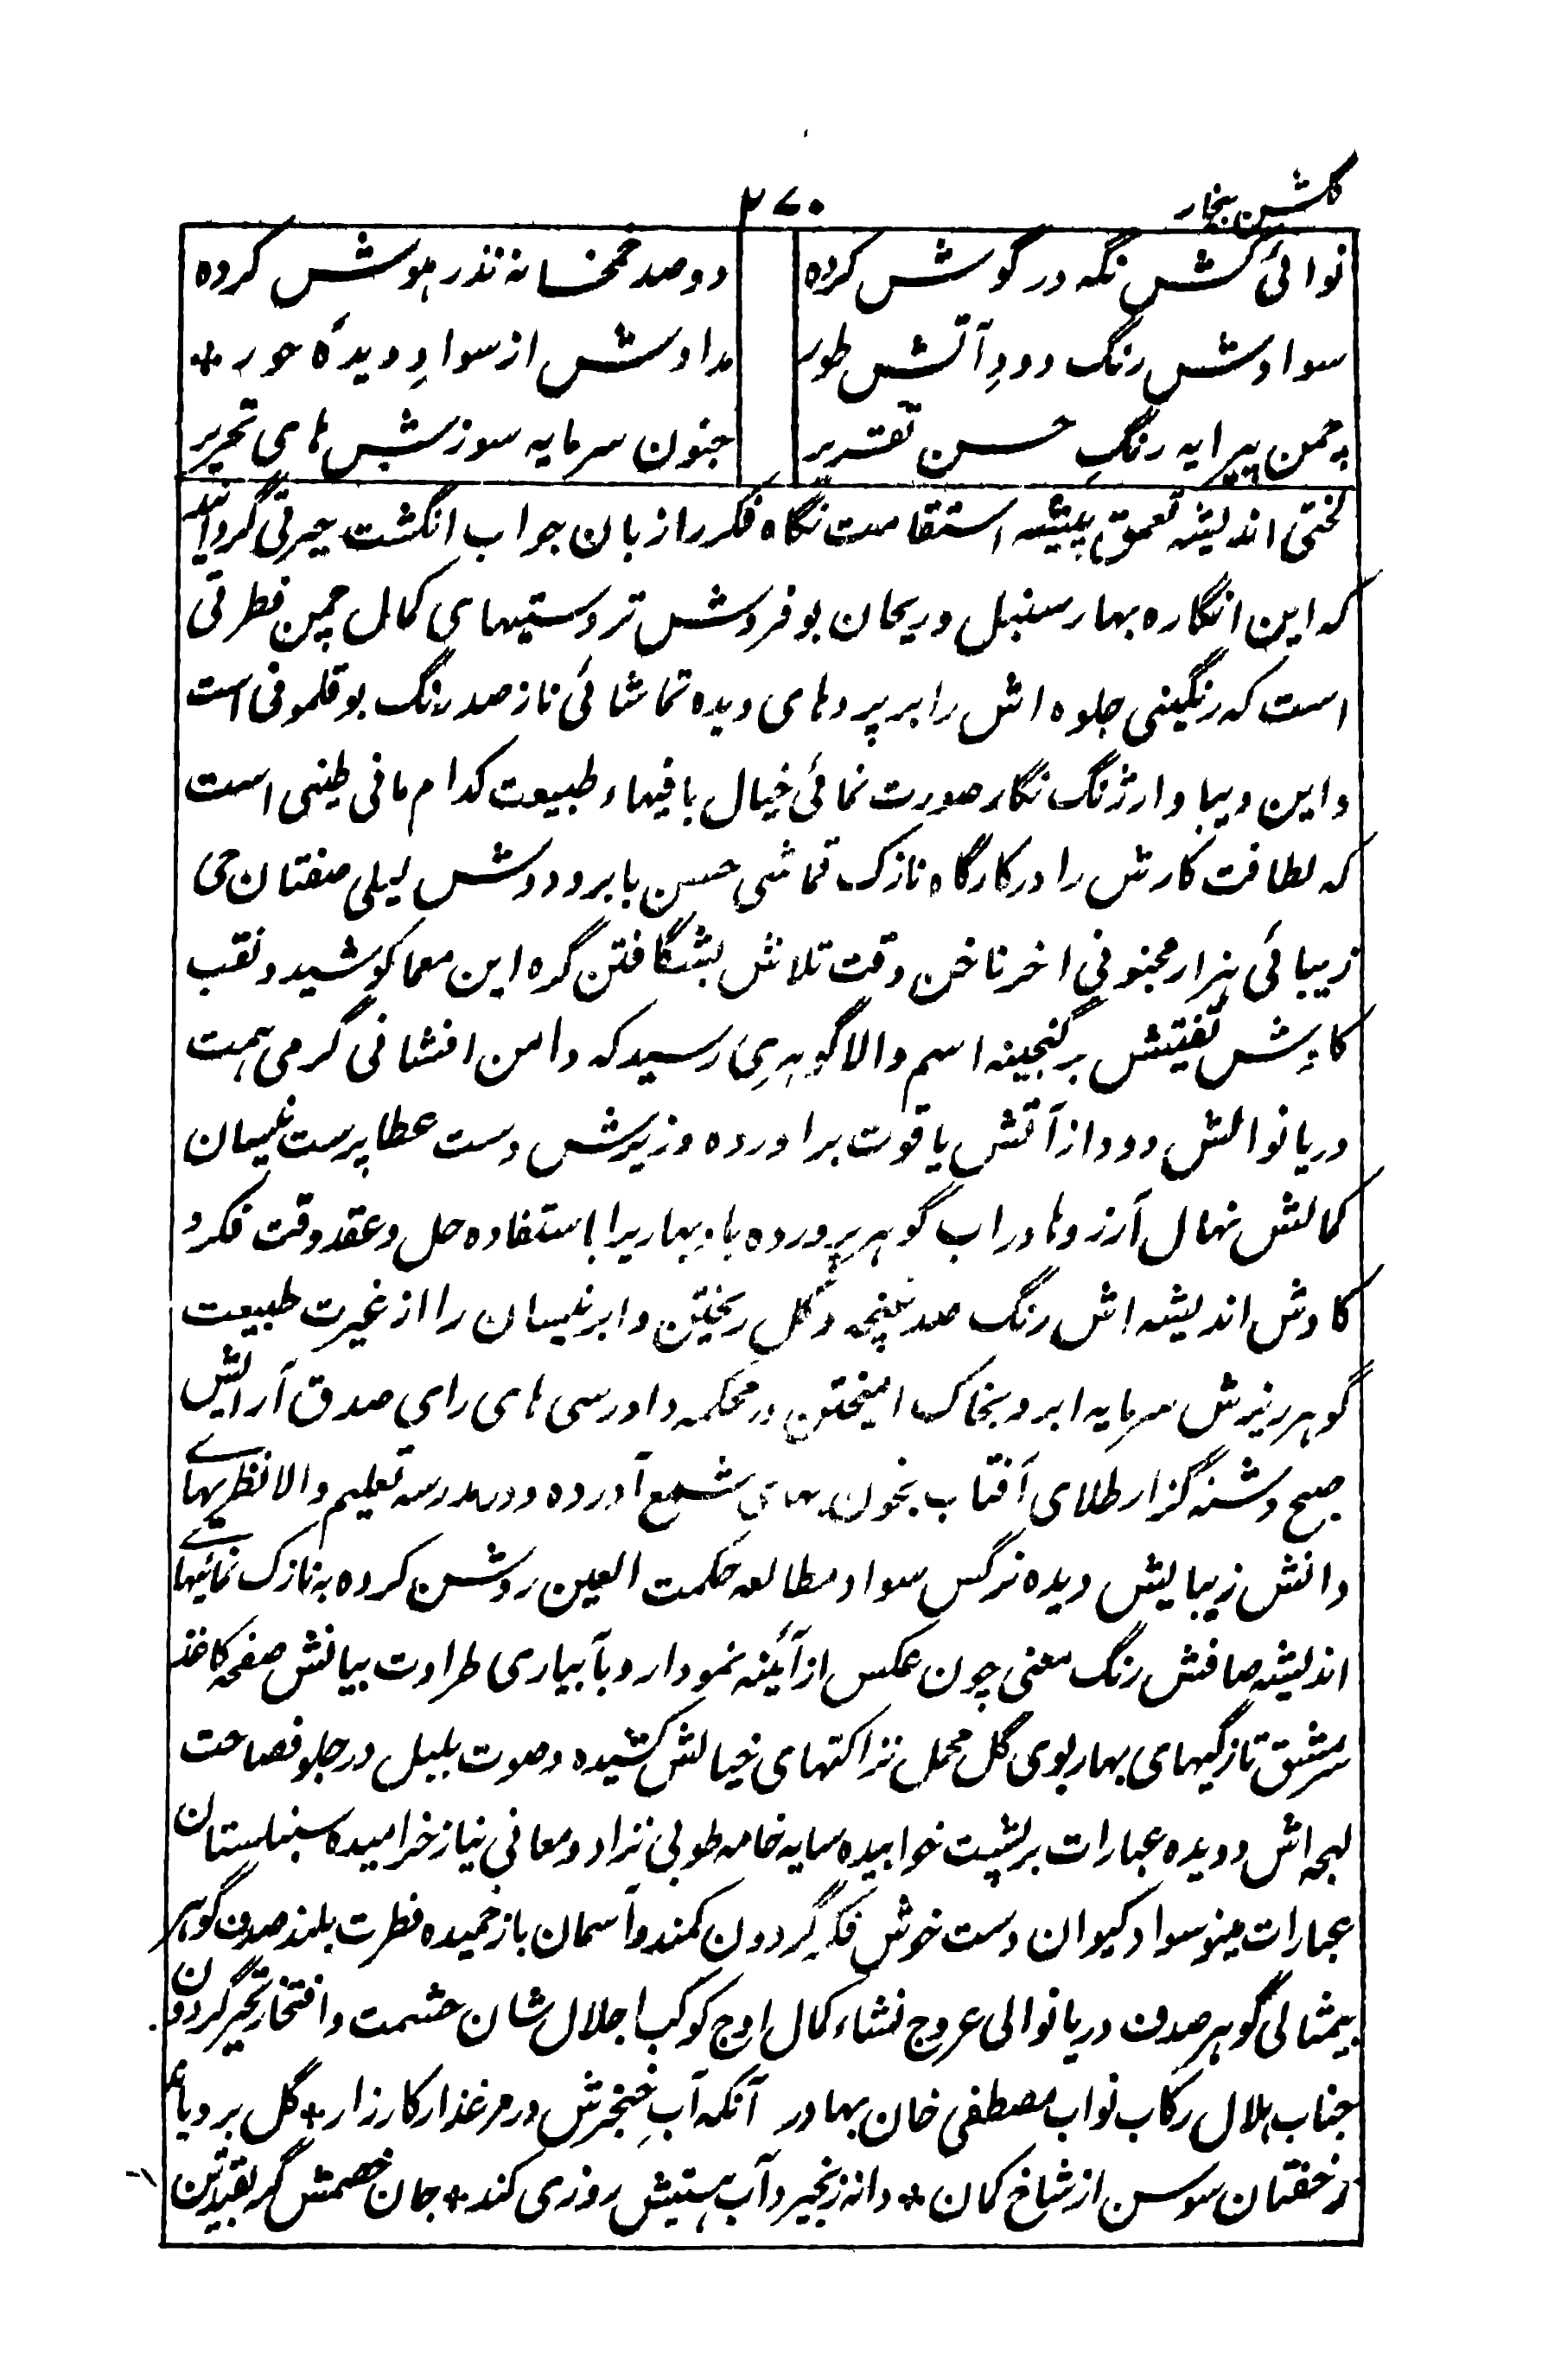 گلشن بیخار
۲۷۰
نوائی کش نگه در گوش کرده دو صد خمخانه نذر هوش کرده
سوادش رنگ دودِ آتش طور مدادش از سوادِ دیدهٔ حور *
چمن پیرایه رنگِ حسن تقریر جنون سرمایه سوزش های تحریر
لختی اندیشه تعمق پیشه استقامت نگاه فکر را زبان جواب انگشت حیرتی گردانید
که این انگاره بهار سنبل و ریحان بو فروش تردستیهای کمال چمن فطرتی
است که رنگینی جلوه اش را بر پردهای دیده تماشائی ناز صد رنگ بوقلمونی است
و این دیبا و ارژنگ نگار صورت نمائی خیال بافیهاء طبیعت کدام مانی طینی است
که لطافت کارش را در کارگاه نازک قماشی حسن با بر و دوش لیلی صفتان حی
زیبائی هزار مجنونی اخر ناخن دقت تلاش بشگافتن گره این معما کوشید و نقب
کاوش تفتیش بر گنجینه اسم والا گوهری رسید که دامن افشانی گرمی همت
دریا نوالش دود از آتش یاقوت براورده و ریزش دست عطا پرست نیسان
کمالش نهال آرزوها در اب گوهر پرورده باد بهاریرا باستفاده حل و عقد دقت فکر و
کاوش اندیشه اش رنگ صد غنچه و گل ریختن و ابر نیسان را از غیرت طبیعت
گوهر ریزش سرمایه ابرو بخاک امیختن در محکمه دادرسی های رای صدق آرایش
صبح دشنه گزار طلای آفتاب بخون بهای شمع آورده و در مدرسه تعلیم والا نظریهای
دانش زیبایش دیده نرگس سواد مطالعه حکمت العین روشن کرده به نازک نمائیهای
اندیشه صافش رنگ معنی چون عکس از آئینه نمودار و بآبیاری طراوت بیانش صفحه کاغذ
سرمشق تازگیهای بهار بوی گل محمل نزاکتهای خیالش کشیده و صوت بلبل در جلو فصاحت
لهجه اش دویده عبارات بر پشیت خوابیده سایه خامه طوبی نژاد و معانی نیاز خرامیده سنبلستان
عبارات مینو سواد کیوان دست خوش فکر گردون کمند و آسمان باز خمیده فطرت بلند صدف گوهر
بیمثالی گوهر صدف دریا نوالی عروج نشاء کمال اوج کوکب اجلال شان حشمت و افتخار تحیر گردون
جناب هلال رکاب نواب مصطفی خان بهادر آنکه آبِ خنجرش در مرغذار کارزار * گل برویا
ند خفتان سوسن از شاخ کمان * دانه زنجیر و آب هستیش روزی کند * جان خصمش گر بقید تن